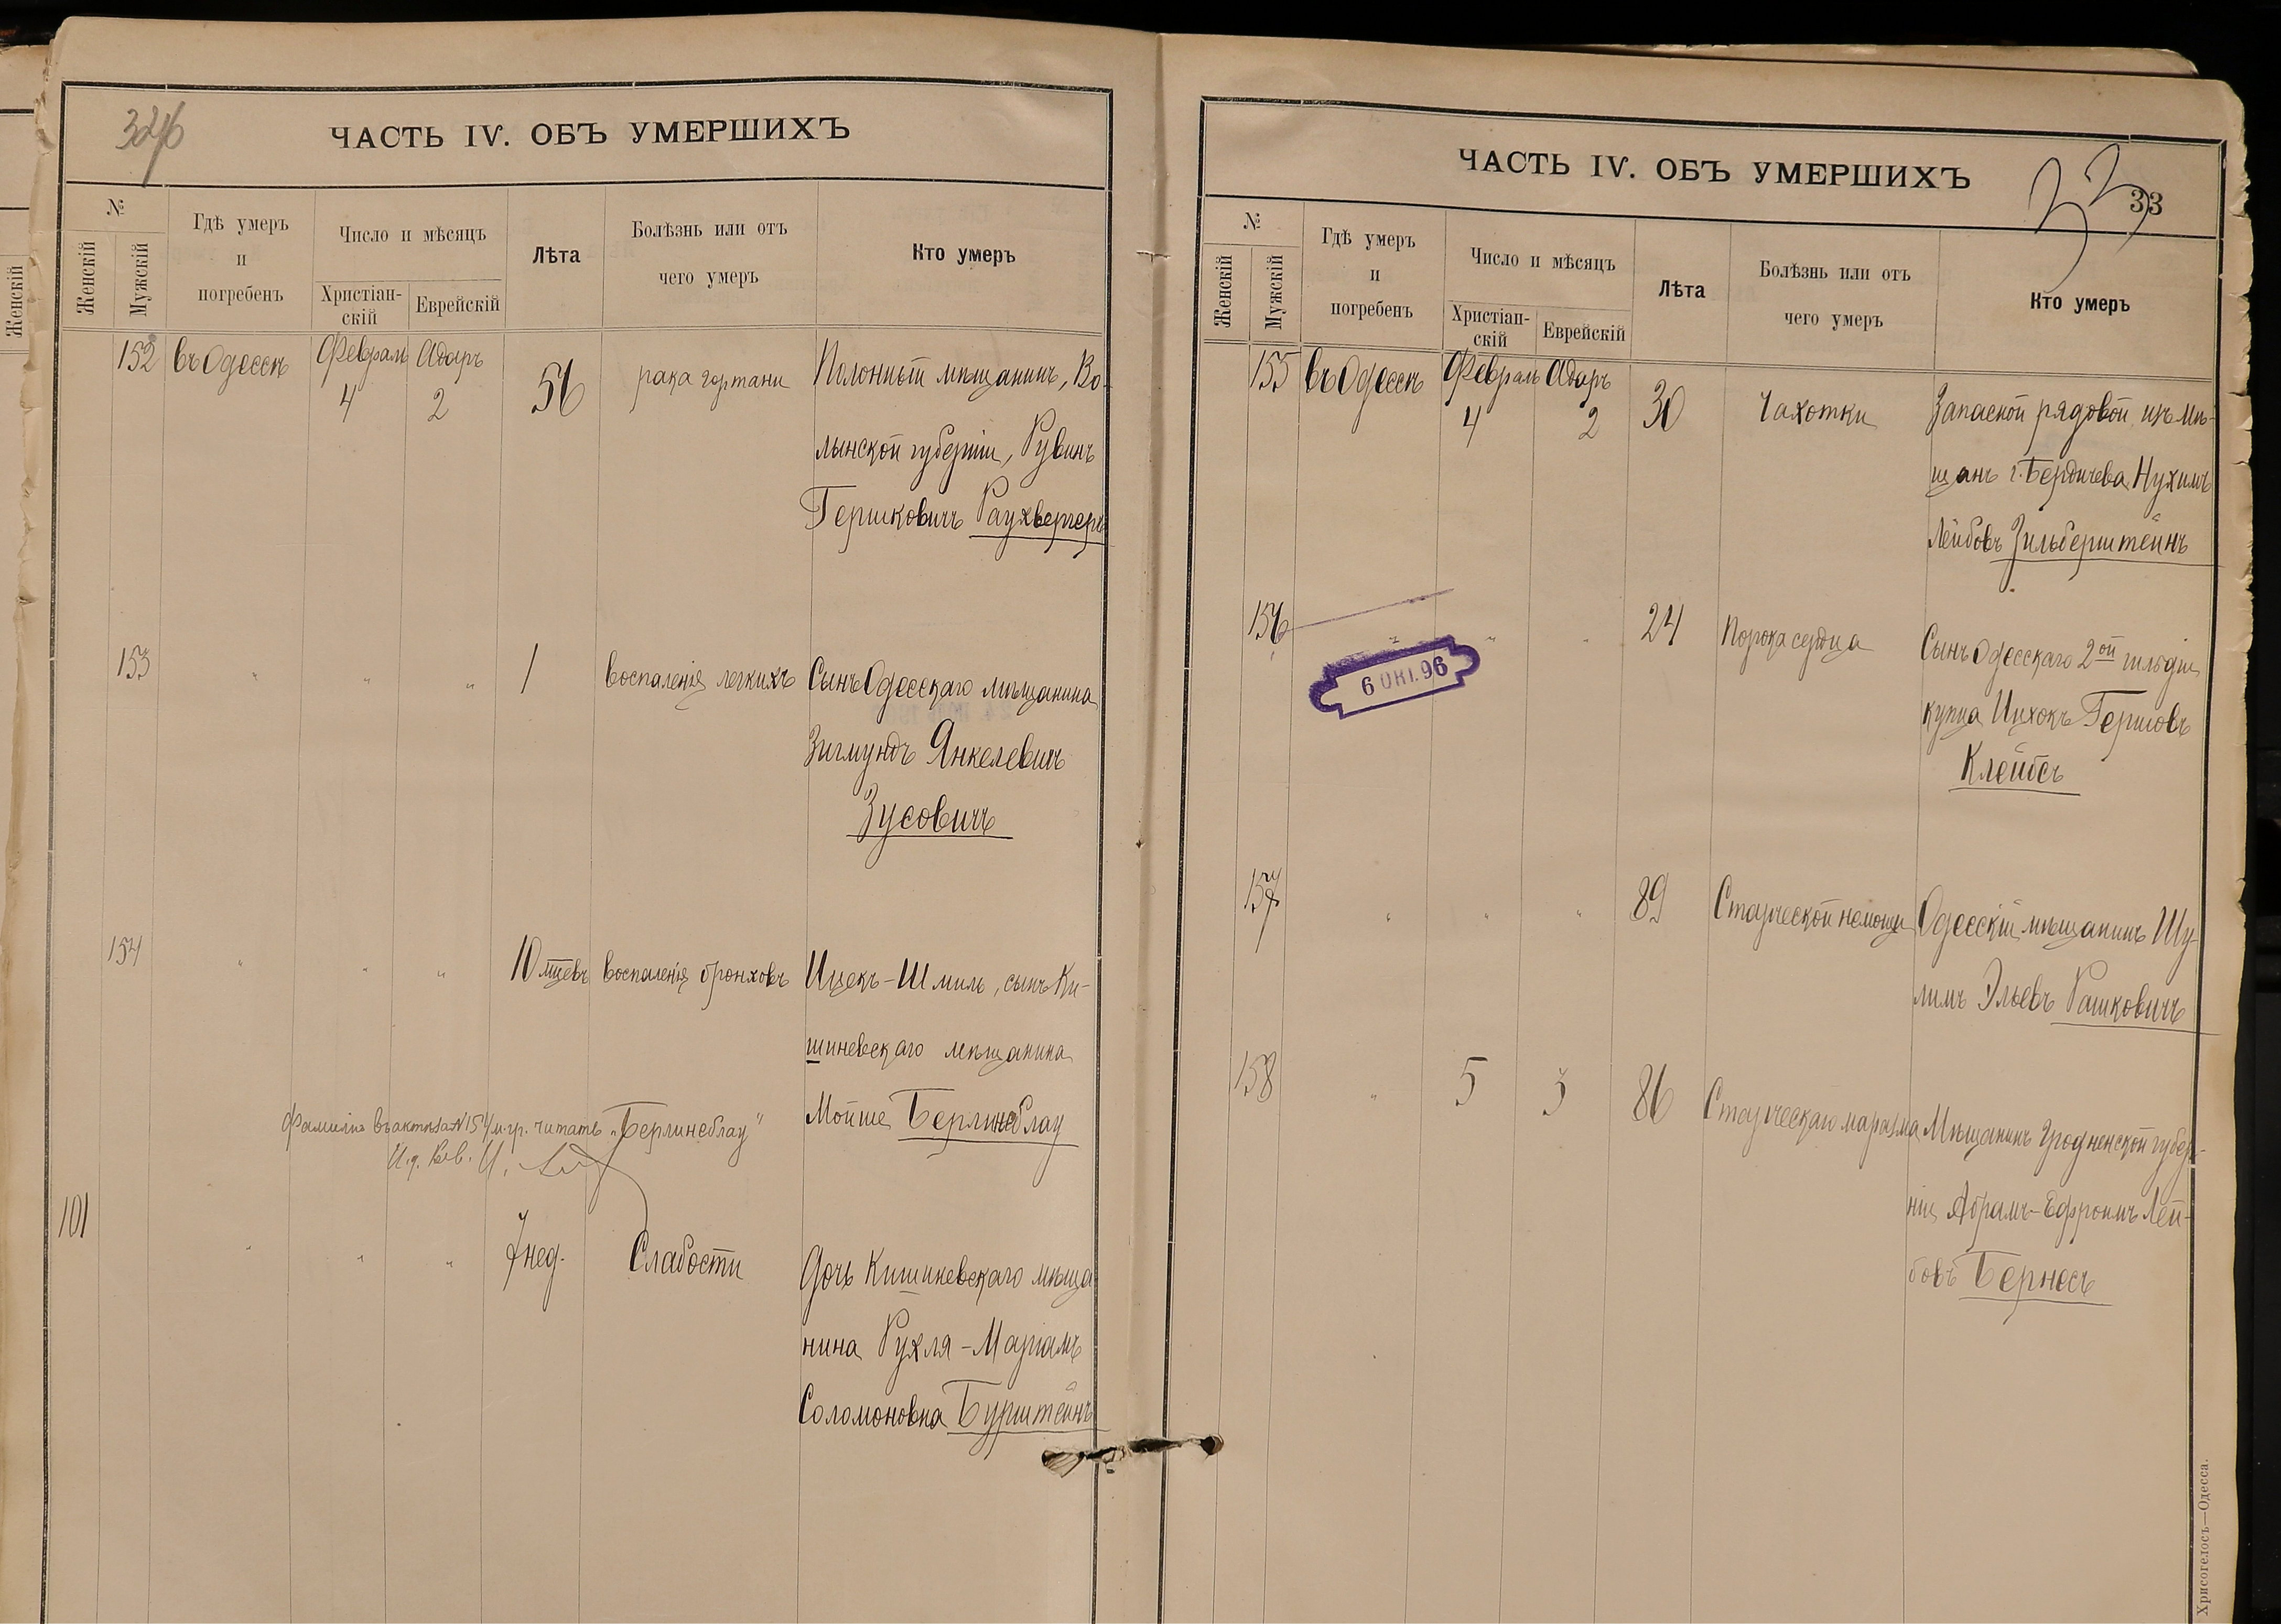 326
ЧАСТЬ IV. ОБЪ УМЕРШИХЪ
№
Женскій
Мужскій
Гдѣ умеръ
и
погребенъ
Число и мѣсяцъ
Христіан-
скій
Еврейскій
Лѣта
Болѣзнь или отъ
чего умеръ
Кто умеръ
152 въ Одессѣ Февраль Адаръ
4 2 56 рака гортани Полонный мѣщанинъ, Во-
лынской губерніи, Рувинъ
Гершковичъ Раухвергеръ
153 " " " 1 воспаленія легкихъ Сынъ Одесскаго мѣщанина
Зигмундъ Янкелевичъ
Зусовичъ
154 " " " 10 мцевъ воспаленія бронховъ Ицекъ-Шмиль, сынъ Ки-
шиневскаго мѣщанина
Мойше Берлинеблау
Фамилію въ актѣ за № 154 м. гр. читать „Берлинеблау"
И. д. Рав.
101 " " " 7 нед. Слабости Дочь Кишиневскаго мѣща
нина Рухля-Маріамъ
Соломоновна Бурштейнъ
ЧАСТЬ IV. ОБЪ УМЕРШИХЪ
33
33
№
Женскій
Мужскій
Гдѣ умеръ
и
погребенъ
Число и мѣсяцъ
Христіан-
скій
Еврейскій
Лѣта
Болѣзнь или отъ
чего умеръ
Кто умеръ
155 въ Одессѣ Февраль Адаръ
4 2 30 Чахотки Запасной рядовой изъ мѣ-
щанъ г. Бердичева Нухимъ
Лейбовъ Зильберштейнъ
156 " " " 24 Порока сердца Сынъ Одесскаго 2ой гильдіи
купца Ицхокъ Гершовъ
Клейбсъ
6 ОКТ. 96
157 " " " 89 Старческой немощи Одесскій мѣщанинъ Шу-
лимъ Эльевъ Рашковичъ
158 " 5 3 86 Старческаго маразма Мѣщанинъ Гродненской губер-
ніи Абрамъ-Ефроимъ Лей-
бовъ Бернесъ
Хрисогелосъ—Одесса.
Женскій